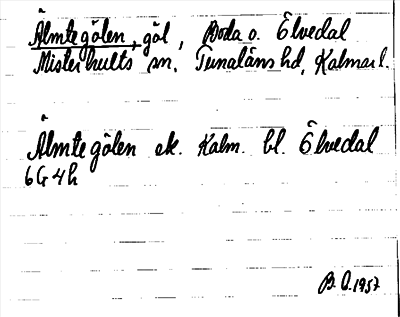 Älmtegölen, göl, Boda o. Älvedal
Misterhults sn, Tunaläns hd, Kalmar l.
Älmtegölen ek. Kalm. bl. Älvedal
6G 4h
B.O. 1957